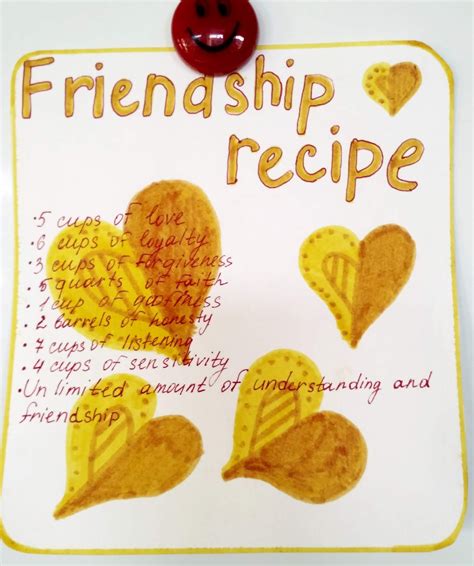 Friendship
recipe
·5 cups of love
·6 cups of loyalty
·3 cups of forgiveness
·5 quarts of faith
·1 cup of
·2 barrels of honesty
·7 cups of listening
·4 cups of sensitivity
·Unlimited amount of understanding and
friendship